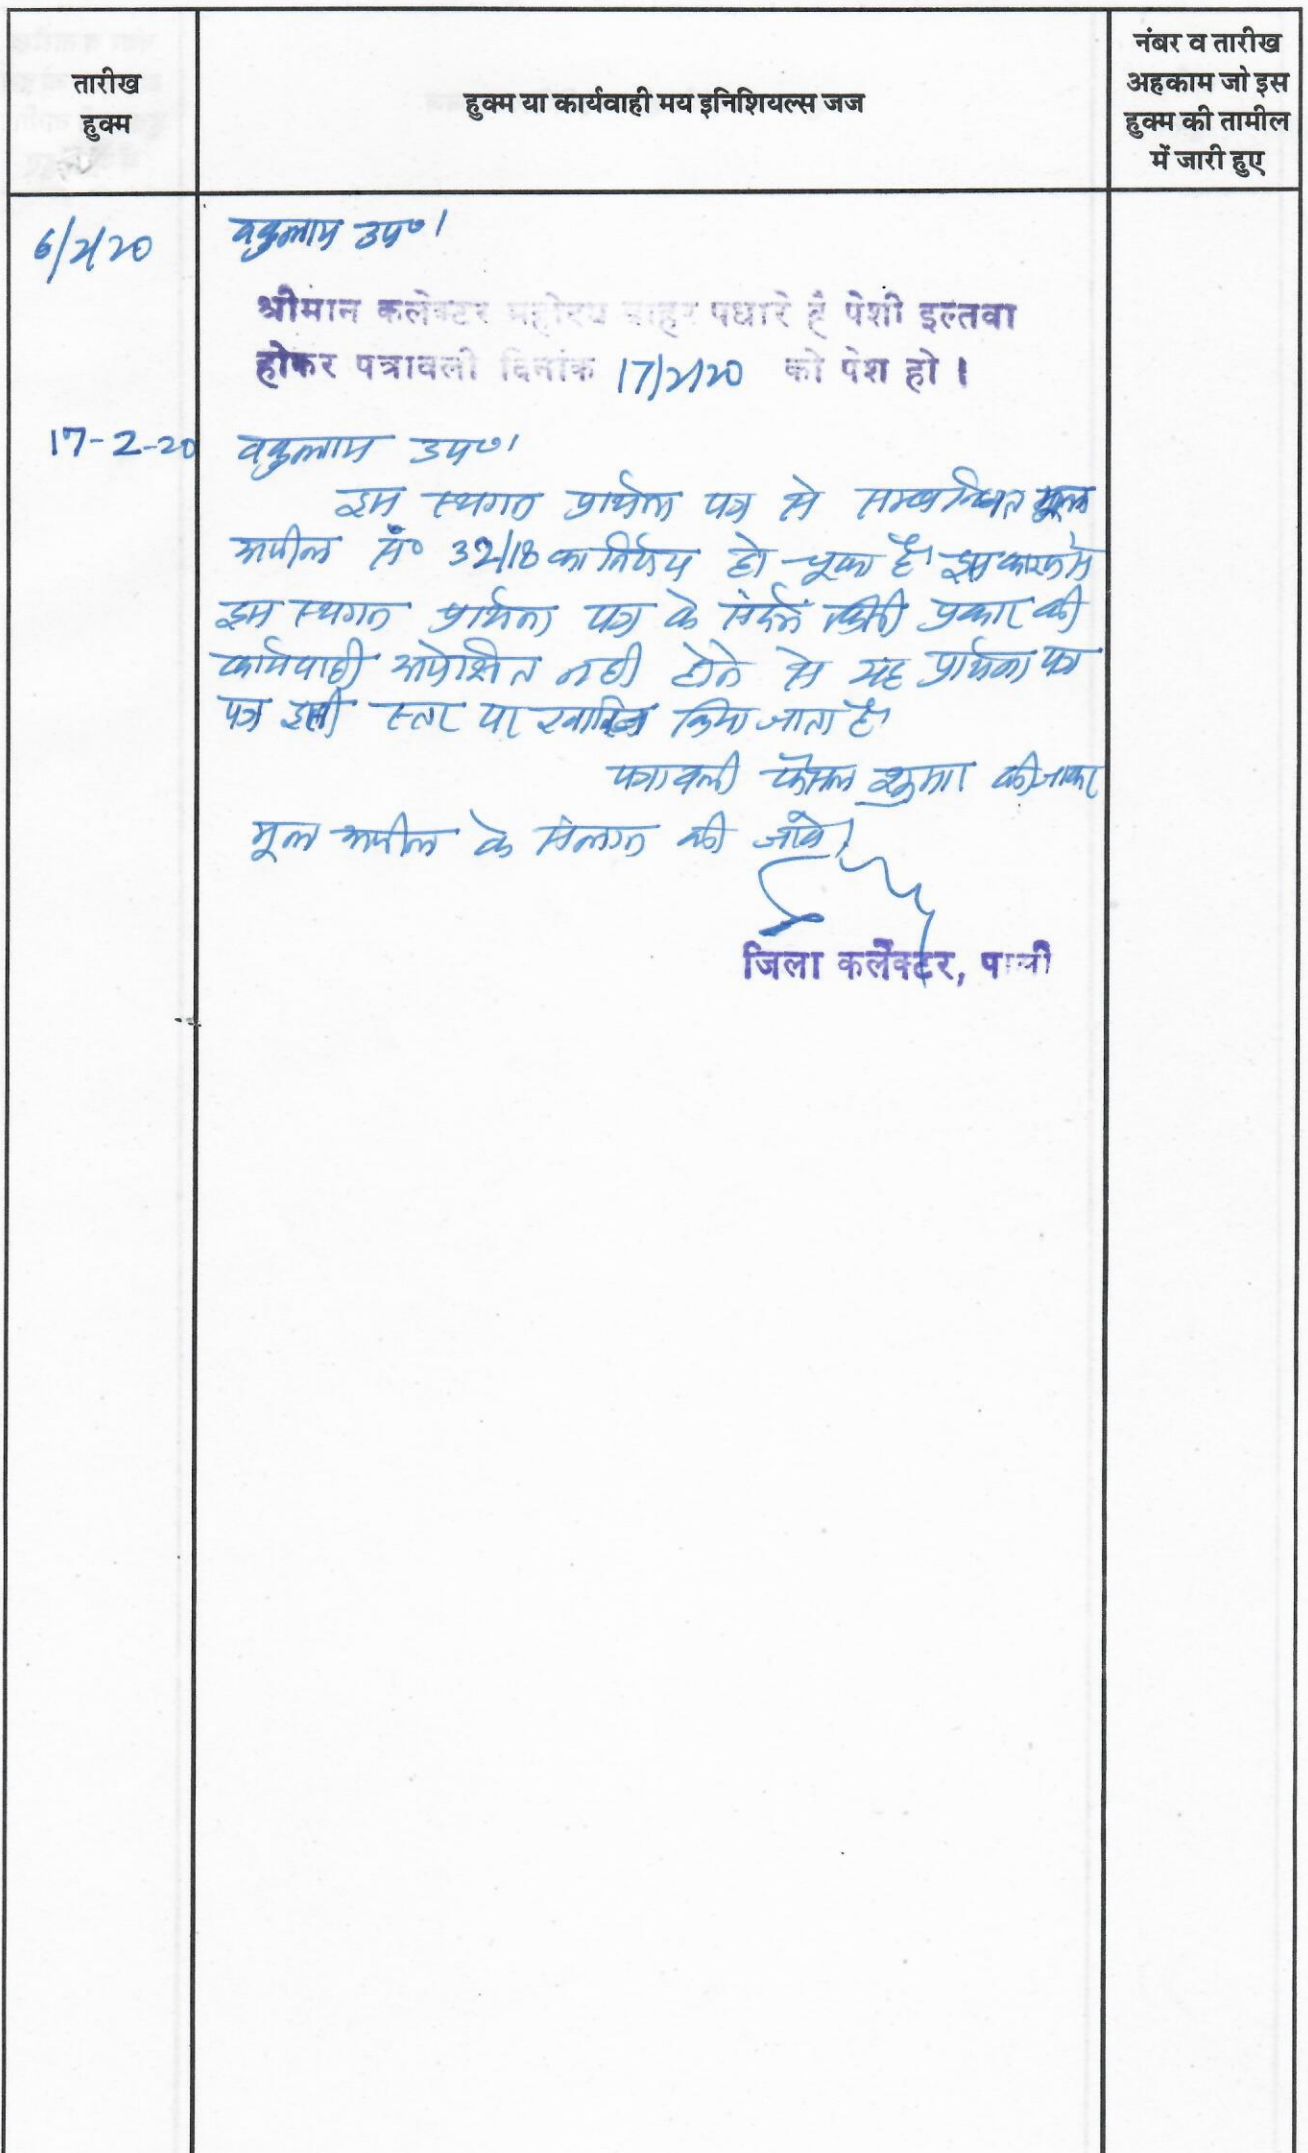 तारीख
हुक्म
हुक्म या कार्यवाही मय इनिशियल्स जज
नंबर व तारीख
अहकाम जो इस
हुक्म की तामील
में जारी हुए
6/2/20
वकुलाय उप०।
श्रीमान कलेक्टर महोदय बाहर पधारे है पेशी इल्तवा
होकर पत्रावली दिनांक 17/2/20 को पेश हो ।
17-2-20
वकुलाय उप०।
इस स्थगन प्रार्थना पत्र से सम्बन्धित मूल
अपील सं० 32/18 का निर्णय हो चूका है। इस कारण से
इस स्थगन प्रार्थना पत्र के संदर्भ किसी प्रकार की
कार्यवाही अपेक्षित नही होने से यह प्रार्थना पत्र
पत्र इसी स्तर पर खारिज किया जाता है।
पत्रावली फैसल शुमार की जाकर
मूल अपील के संलग्न की जावे।
जिला कलेक्टर, पाली